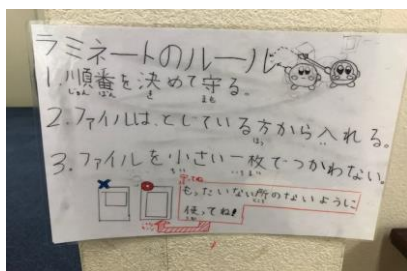 ラミネートのルール
1.順番を決めて守る。
じゅんばん き まも
2.ファイルは、とじている方から入れる。
ほう い
3.ファイルを小さい一枚でつかわない。
ちい いちまい
もったいない所のないように
使ってね!